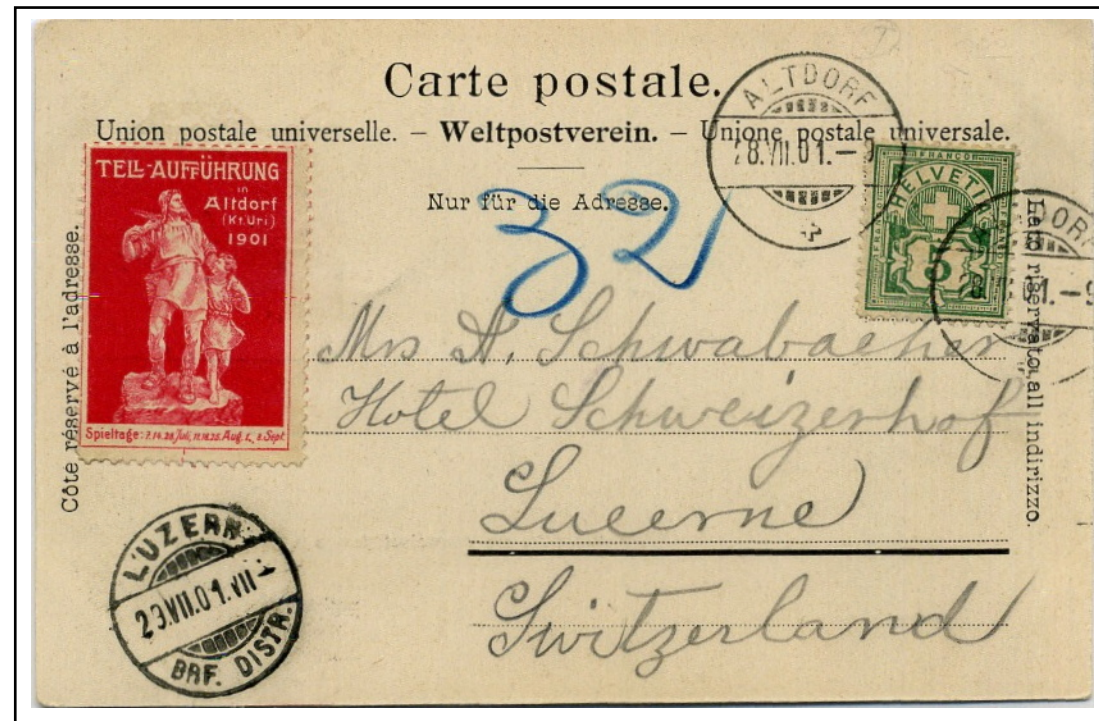 Carte postale.
Union postale universelle. – Weltpostverein. – Unione postale universale.
Nur für die Adresse.
Côte réservé à l'adresse.
Lato riservato all indirizzo.
TELL-AUFFÜHRUNG
in
Altdorf
(Kt. Uri)
1901
Spieltage: 7. 14. 28. Juli, 11. 18. 25. Aug. 1., 8. Sept.
32
ALTDORF
28.VII.01.–9
FRANCO
HELVETIA
5
DORF
1.–9
Mrs A. Schwabacher
Hotel Schweizerhof
Lucerne
Switzerland
LUZERN
29.VII.01.VII
BRF. DISTR.